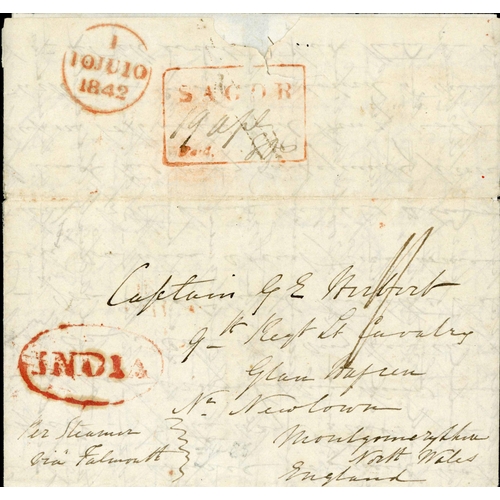 1
10JU10
1842
SAGOR
19 Apl
Paid.
Captain G E Herbert
9th Regt Lt Cavalry
Glan Hafren
Nr Newtown
INDIA
Per Steamer
via Falmouth
Montgomeryshire
North Wales
England